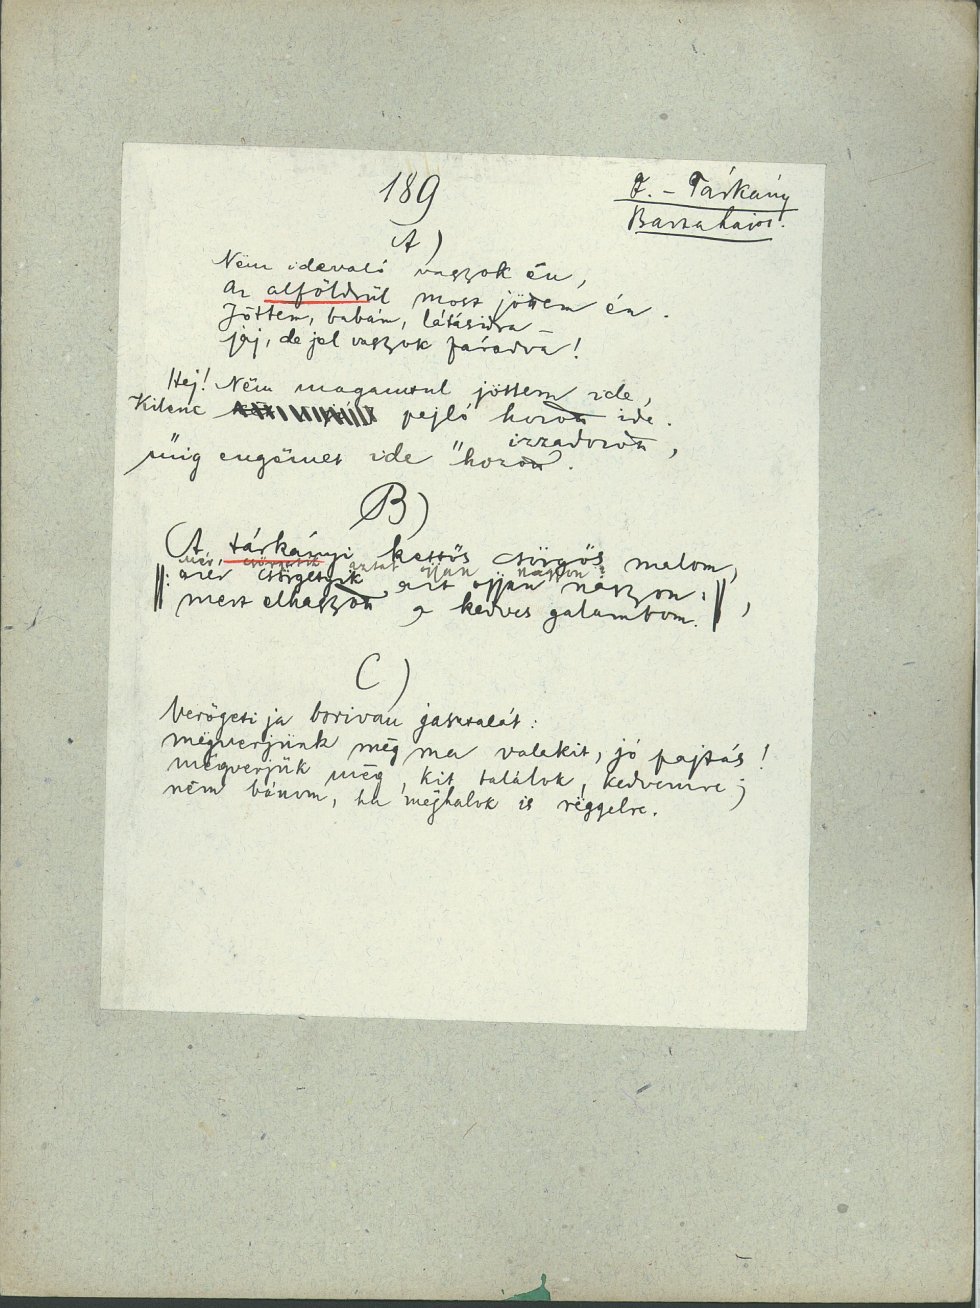 189
F. – Tárkány
Barsahajos.
A)
Nëm idevaló vagyok én,
az alföldrül most jöttem én.
Jöttem, babám, látásidra –
jaj, de jel vagyok fáradva!
Hej! Nëm magamtul jöttem ide,
Kilenc pejló hozott ide.
izzadozott,
müg engëmet ide hozott.
B)
A tárkányi kettős csörgős malom,
mér, csörgetik aztat ojjan naggyon?
mér csörgetyik azt ojjan nagyon:
mert elhagyott a kedves galambom.
C)
Verögeti ja borivau jasztalát:
mëgverjünk mëg ma valakit, jó pajtás!
mëgverjük mëg, kit találok, kedvemre;
nëm bánom, ha mëghalok is rëggelre.